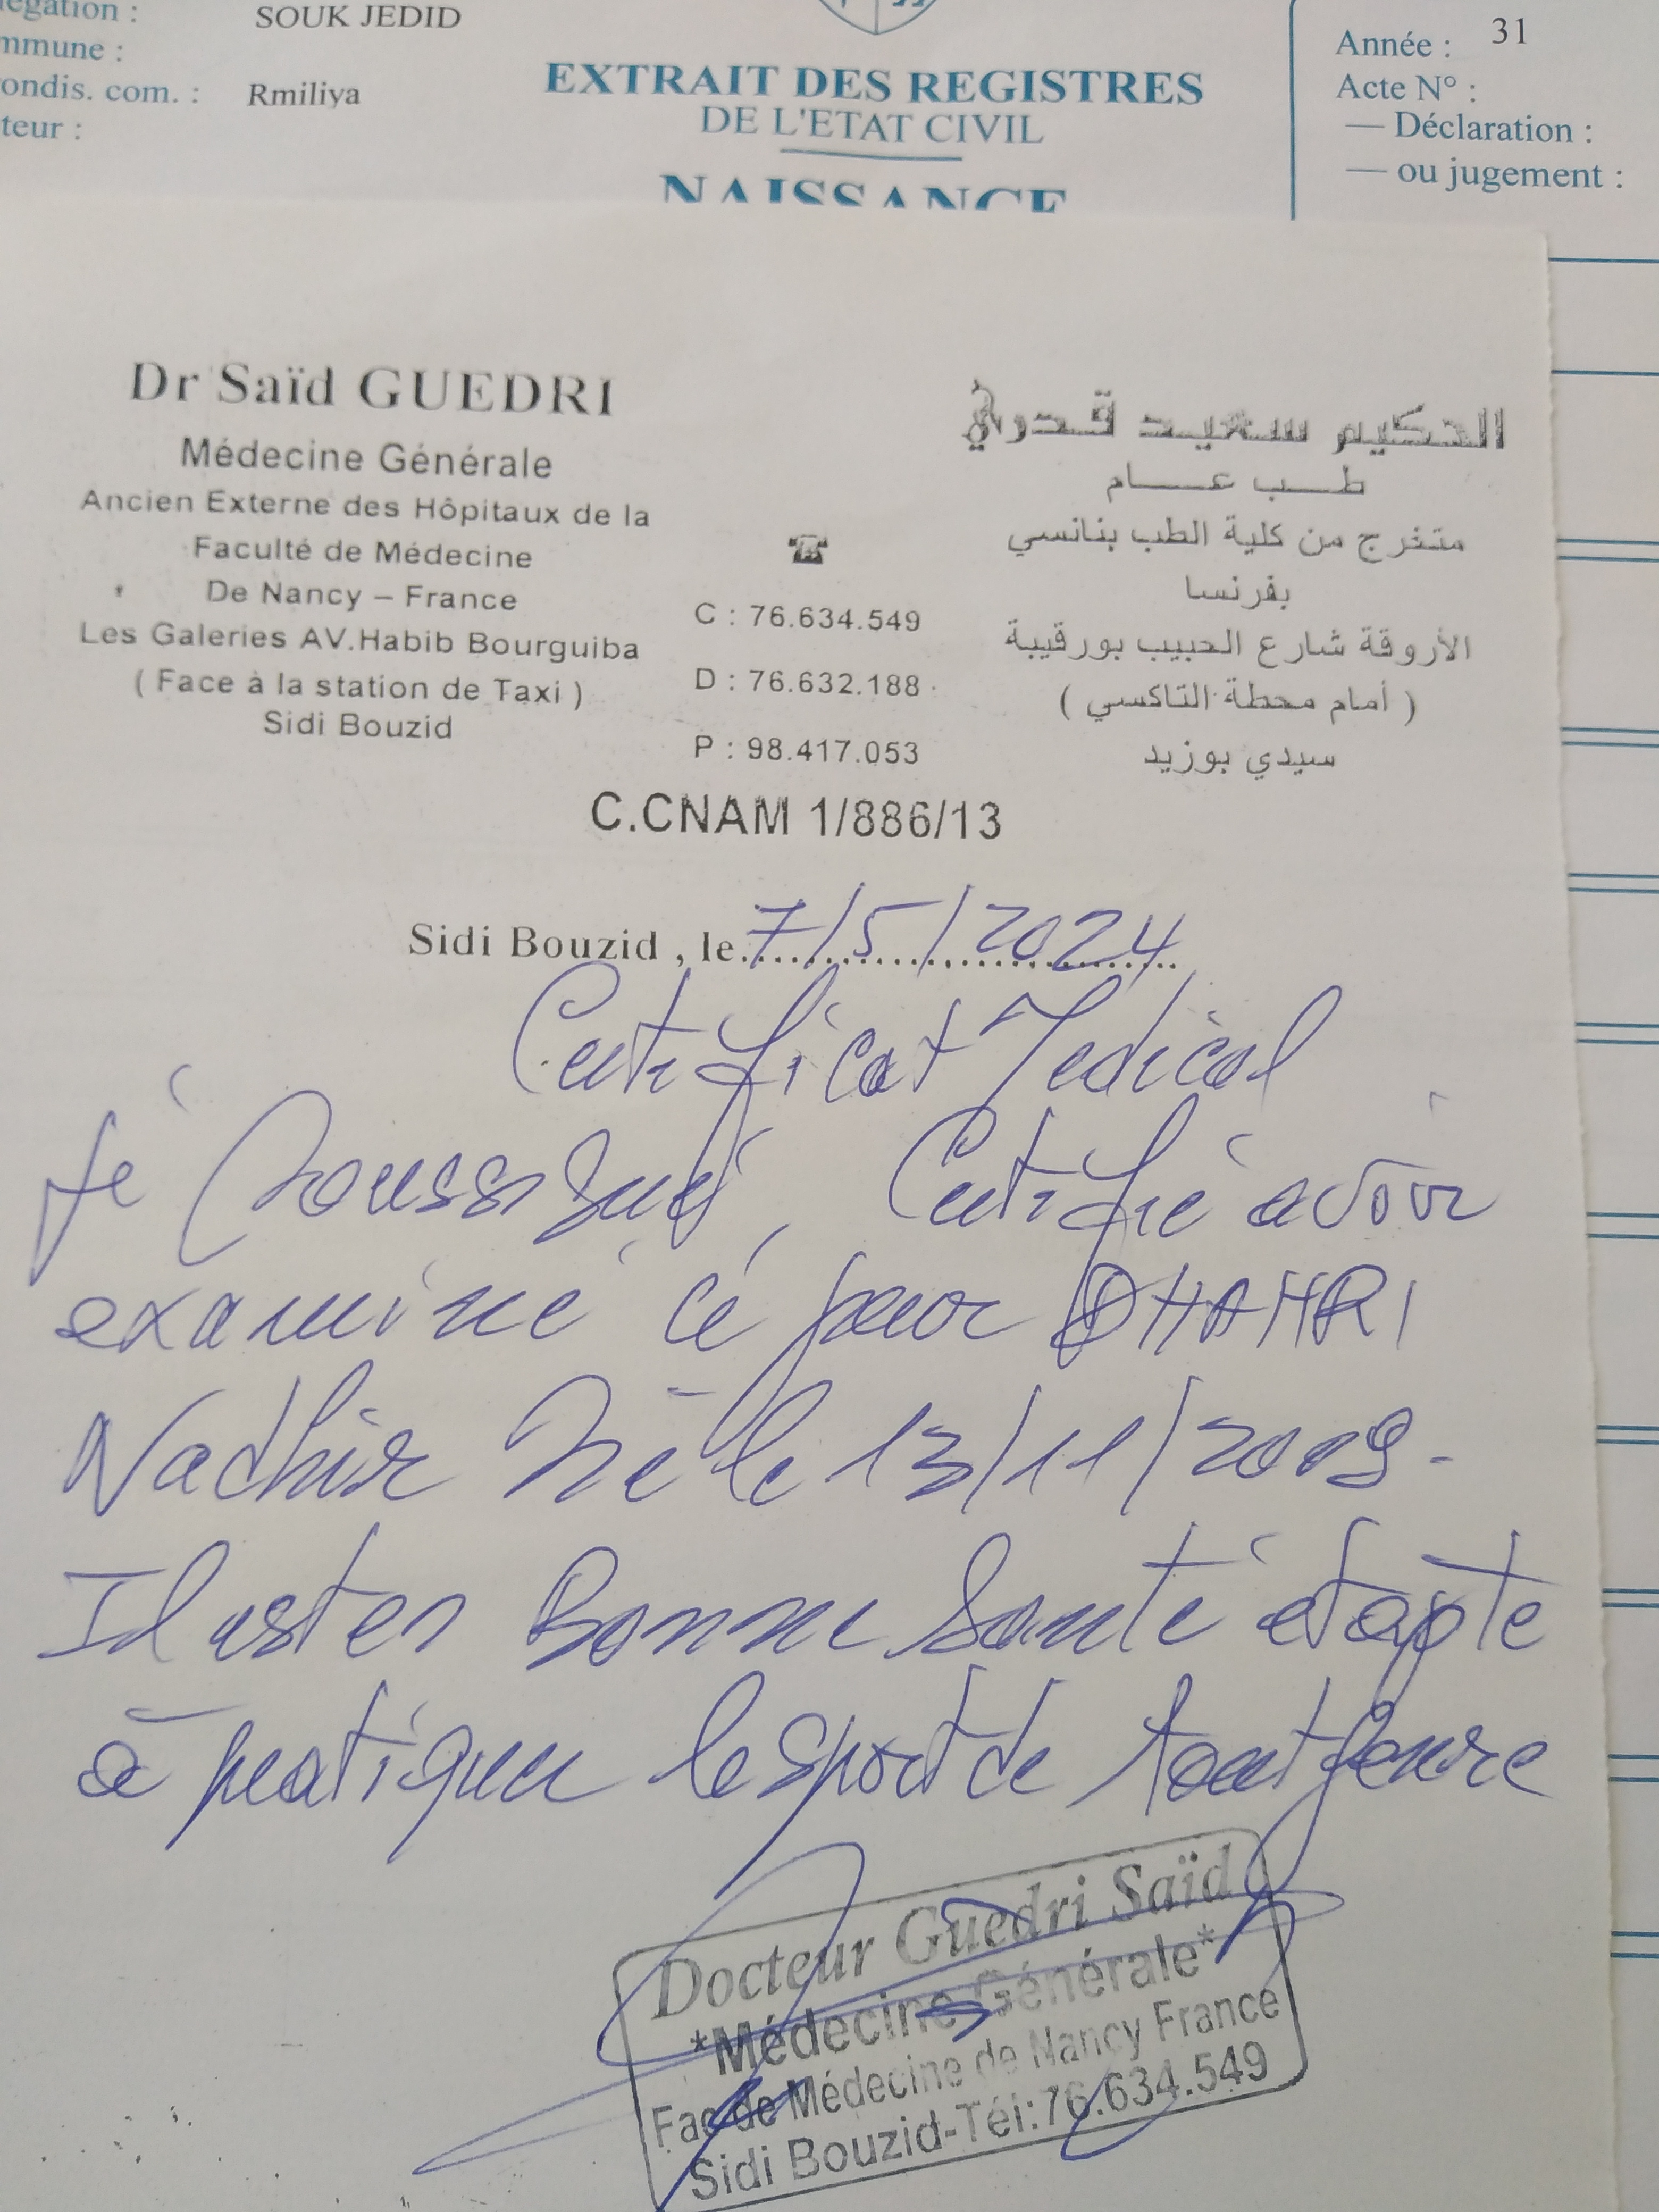 égation : SOUK JEDID
mmune :
ondis. com. : Rmiliya
teur :
EXTRAIT DES REGISTRES
DE L'ETAT CIVIL
NAISSANCE
Année : 31
Acte N° :
— Déclaration :
— ou jugement :
Dr Saïd GUEDRI
Médecine Générale
Ancien Externe des Hôpitaux de la
Faculté de Médecine
De Nancy – France
Les Galeries AV.Habib Bourguiba
( Face à la station de Taxi )
Sidi Bouzid
☎
C : 76.634.549
D : 76.632.188
P : 98.417.053
الحكيم سعيد قدري
طب عام
متخرج من كلية الطب بنانسي
بفرنسا
الأروقة شارع الحبيب بورقيبة
( أمام محطة التاكسي )
سيدي بوزيد
C.CNAM 1/886/13
Sidi Bouzid , le 7/5/2024
Certificat Medical
Je Soussigné, Certifié avoir
examiné ce jour DHAHRI
Nadhir Né le 13/11/2009.
Il est en Bonne Santé et apte
à pratiquer le sport de tout genre
Docteur Guedri Saïd
*Médecine Générale*
Fac de Médecine de Nancy France
Sidi Bouzid-Tél:76.634.549